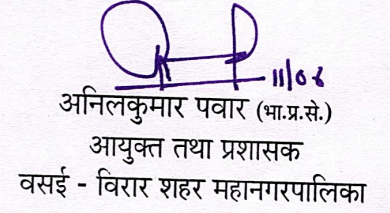 11/06
अनिलकुमार पवार (भा.प्र.से.)
आयुक्त तथा प्रशासक
वसई - विरार शहर महानगरपालिका